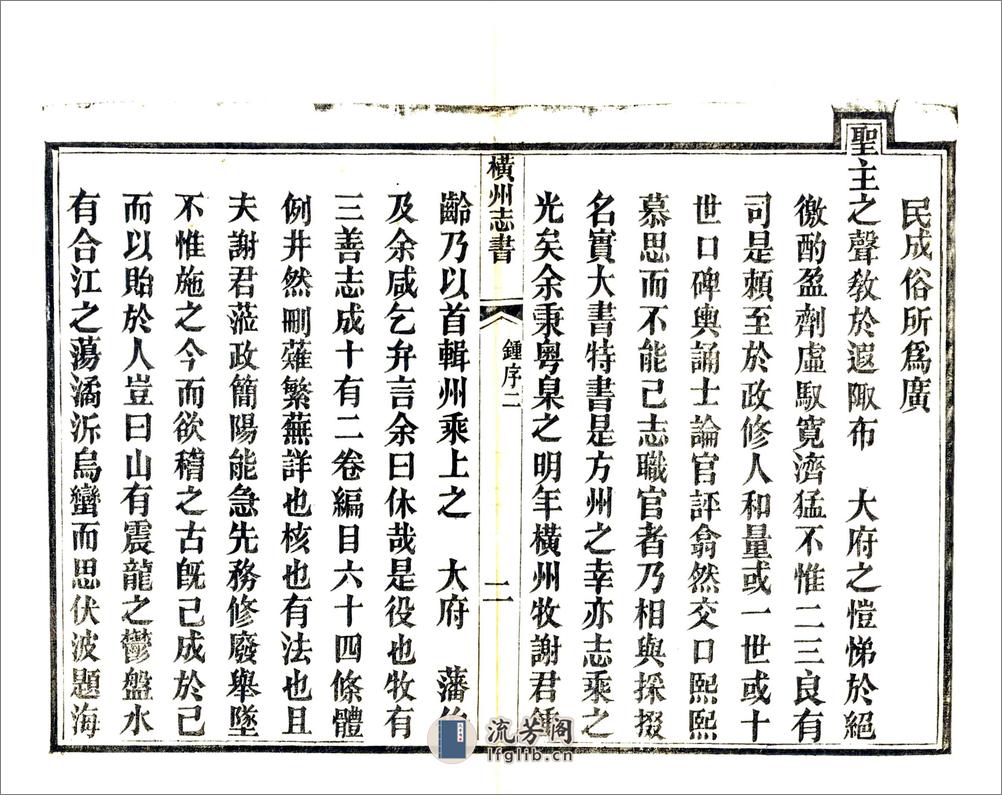 民成俗所爲廣
聖主之聲敎於遐陬布　大府之愷悌於絕
徼酌盈劑虛馭寬濟猛不惟二三良有
司是頼至於政修人和量或一世或十
世口碑輿誦士論官評翕然交口熙熙
慕思而不能已志職官者乃相與採掇
名實大書特書是方州之幸亦志乘之
光矣余秉粵臬之明年橫州牧謝君鍾
橫州志書
鍾序二
二
齡乃以首輯州乘上之　大府　藩伯
及余咸乞弁言余曰休哉是役也牧有
三善志成十有二卷編目六十四條體
例井然刪薙繁蕪詳也核也有法也且
夫謝君蒞政簡陽能急先務修廢舉墜
不惟施之今而欲稽之古旣已成於己
而以貽於人豈曰山有震龍之鬱盤水
有合江之蕩潏泝烏蠻而思伏波題海
流芳阁
lfglib.cn